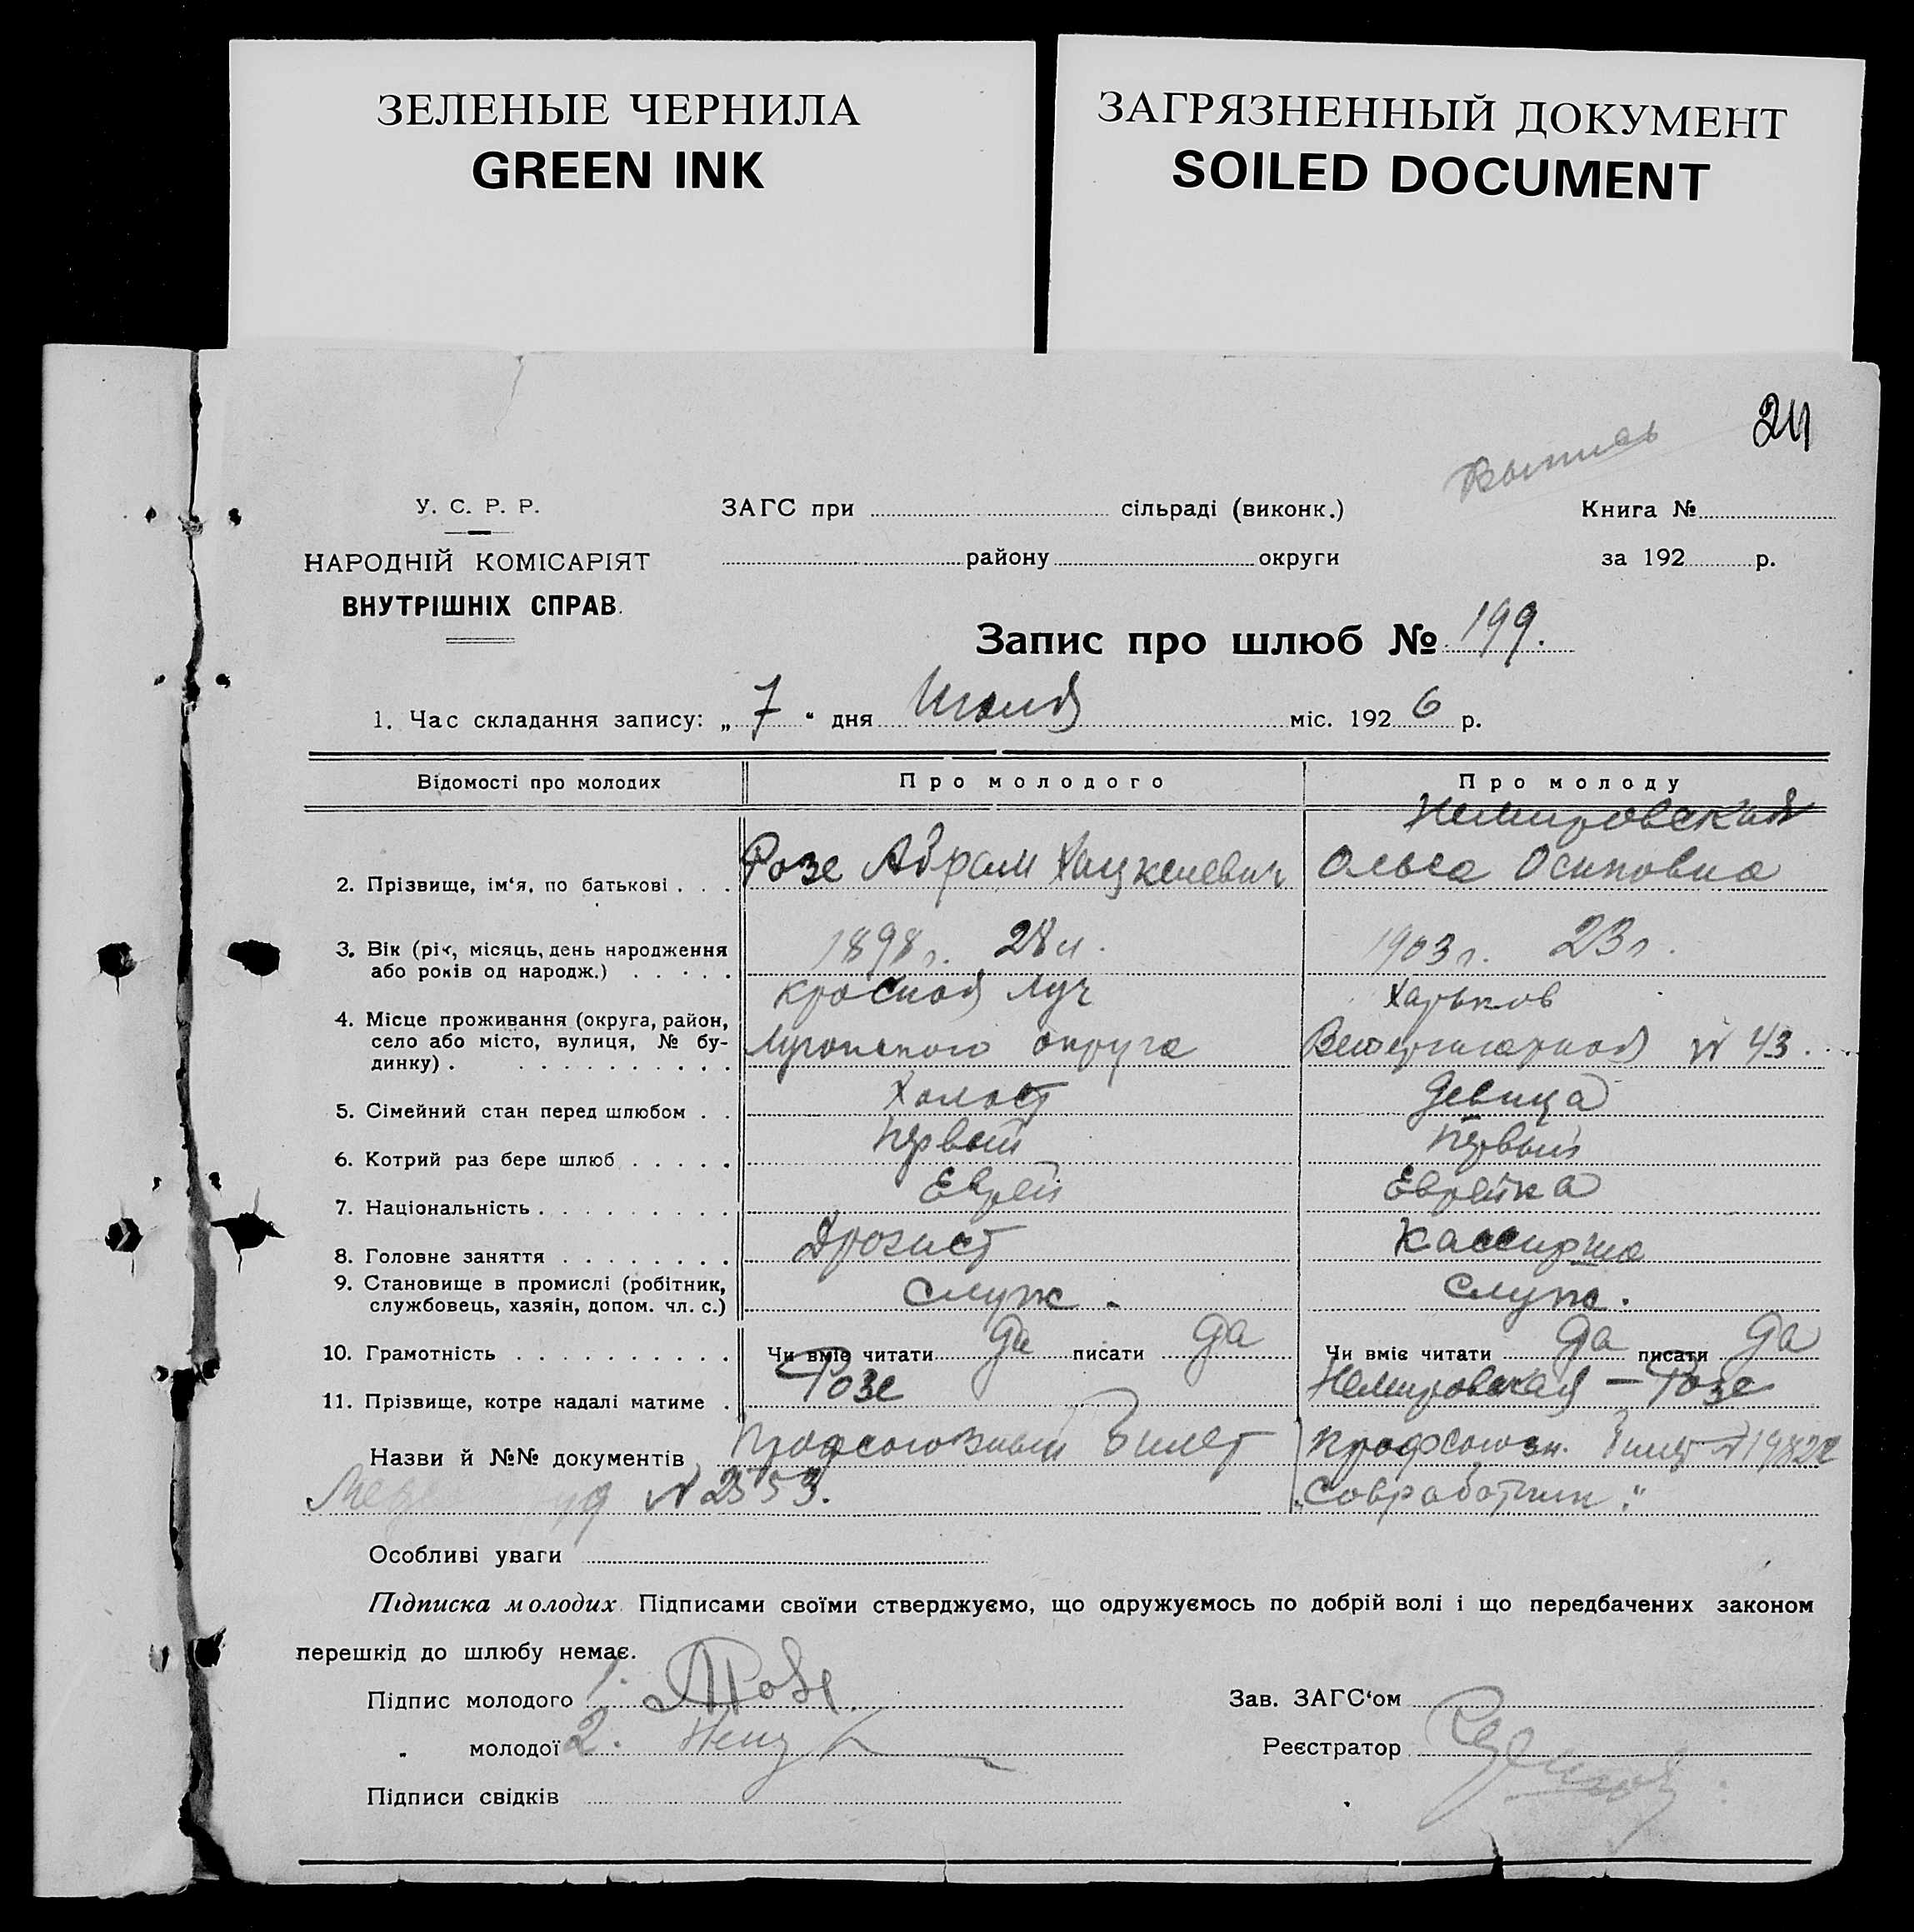 ЗЕЛЕНЫЕ ЧЕРНИЛА
GREEN INK
ЗАГРЯЗНЕННЫЙ ДОКУМЕНТ
SOILED DOCUMENT
У. С. Р. Р.
НАРОДНІЙ КОМІСАРІЯТ
ВНУТРІШНІХ СПРАВ.
ЗАГС при сільраді (виконк.)
району округи
Книга №
за 192 р.
Запис про шлюб № 199.
1. Час складання запису: „ 7 “ дня міс. 192 6 р.
Відомості про молодих Про молодого Про молоду
Немировская
2. Прізвище, ім‘я, по батькові . . . Розе Абрам Хацкелевич Ольга Осиповна
3. Вік (рік, місяць, день народження
або років од народж.) . . . . . 1898 г. 28 л. 1903 г. 23 г.
4. Місце проживання (округа, район, Красный Луч Харьков
село або місто, вулиця, № бу-
динку) . . . . . . . . . . . Луганского округа Ветеринарная № 43
5. Сімейний стан перед шлюбом . . Холост Девица
6. Котрий раз бере шлюб . . . . . Первый Первый
7. Національність . . . . . . . . . Еврей Еврейка
8. Головне заняття . . . . . . . . Дрогист Кассирша
9. Становище в промислі (робітник,
службовець, хазяін, допом. чл. с.) Служ. Служ.
10. Грамотність . . . . . . . . . . Чи вміє читати да писати да Чи вміє читати да писати да
11. Прізвище, котре надалі матиме . Розе Немировская — Розе
Назви й №№ документів Профсоюзный билет Профсоюзн. билет № 19822
№ 2553. „Совработник“
Особливі уваги
Підписка молодих. Підписами своїми стверджуємо, що одружуємось по добрій волі і що передбачених законом
перешкід до шлюбу немає.
Підпис молодого 1. АРозе
„ молодої 2.
Підписи свідків
Зав. ЗАГС‘ом
Реєстратор